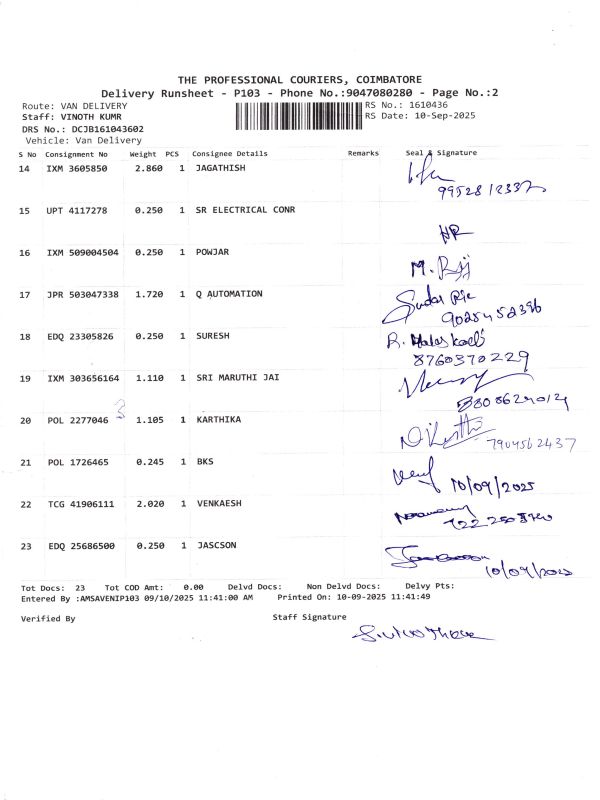 THE PROFESSIONAL COURIERS, COIMBATORE
Delivery Runsheet - P103 - Phone No.:9047080280 - Page No.:2
Route: VAN DELIVERY RS No.: 1610436
Staff: VINOTH KUMR RS Date: 10-Sep-2025
DRS No.: DCJB161043602
Vehicle: Van Delivery
S No Consignment No Weight PCS Consignee Details Remarks Seal & Signature
14 IXM 3605850 2.860 1 JAGATHISH
15 UPT 4117278 0.250 1 SR ELECTRICAL CONR
HR
16 IXM 509004504 0.250 1 POWJAR
17 JPR 503047338 1.720 1 Q AUTOMATION
18 EDQ 23305826 0.250 1 SURESH
8760370229
19 IXM 303656164 1.110 1 SRI MARUTHI JAI
20 POL 2277046 3 1.105 1 KARTHIKA
7904562437
21 POL 1726465 0.245 1 BKS
10/09/2025
22 TCG 41906111 2.020 1 VENKAESH
23 EDQ 25686500 0.250 1 JASCSON
10/09/2025
Tot Docs: 23 Tot COD Amt: 0.00 Delvd Docs: Non Delvd Docs: Delvy Pts:
Entered By :AMSAVENIP103 09/10/2025 11:41:00 AM Printed On: 10-09-2025 11:41:49
Verified By Staff Signature